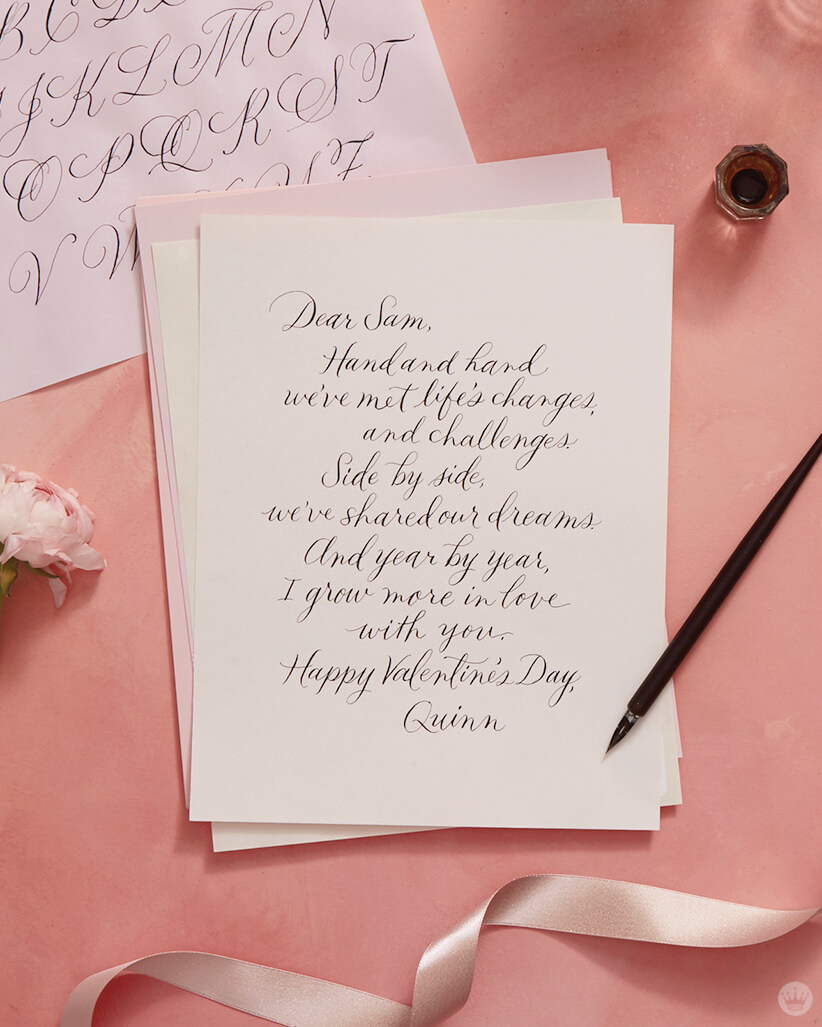 B C D
I J K L M N
O P Q R S T
V W Z
Dear Sam,
Hand and hand
we've met life's changes,
and challenges.
Side by side,
we've shared our dreams.
And year by year,
I grow more in love
with you.
Happy Valentine's Day,
Quinn